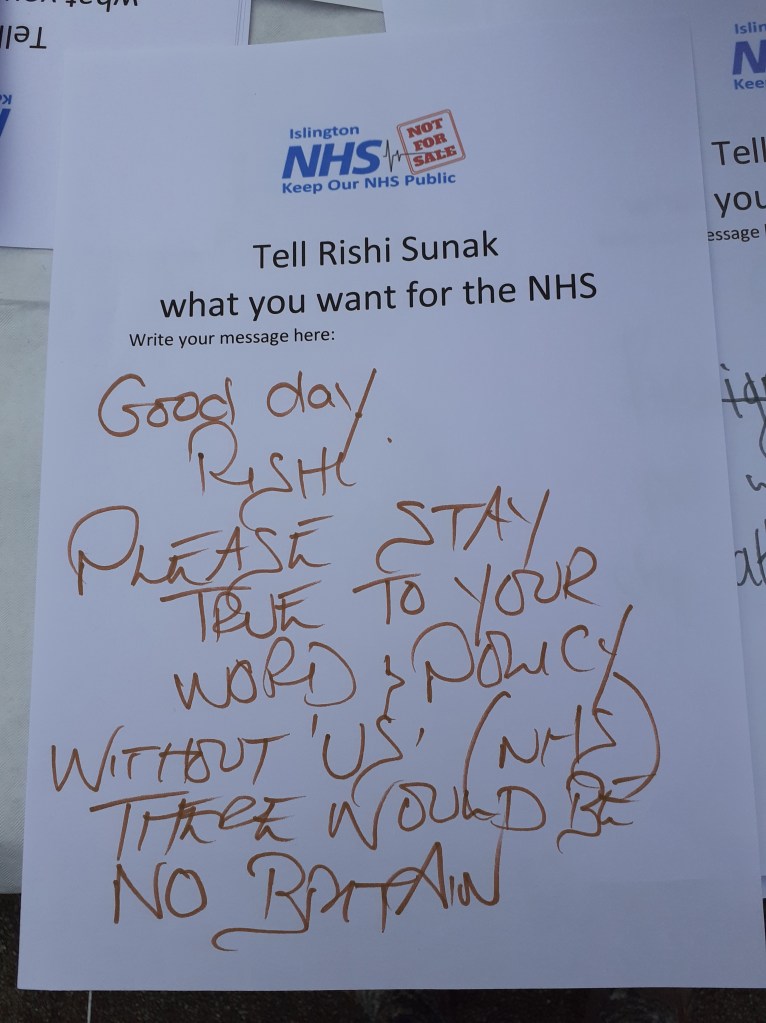 what you
Tell
Islington
NHS
NOT
FOR
SALE
Keep Our NHS Public
Tell Rishi Sunak
what you want for the NHS
Write your message here:
Good day
RISHI.
PLEASE STAY
TRUE TO YOUR
WORD & POLICY
WITHOUT 'US' (NHS)
THERE WOULD BE
NO BRITAIN
Islin
N
Kee
Tell
you
essage